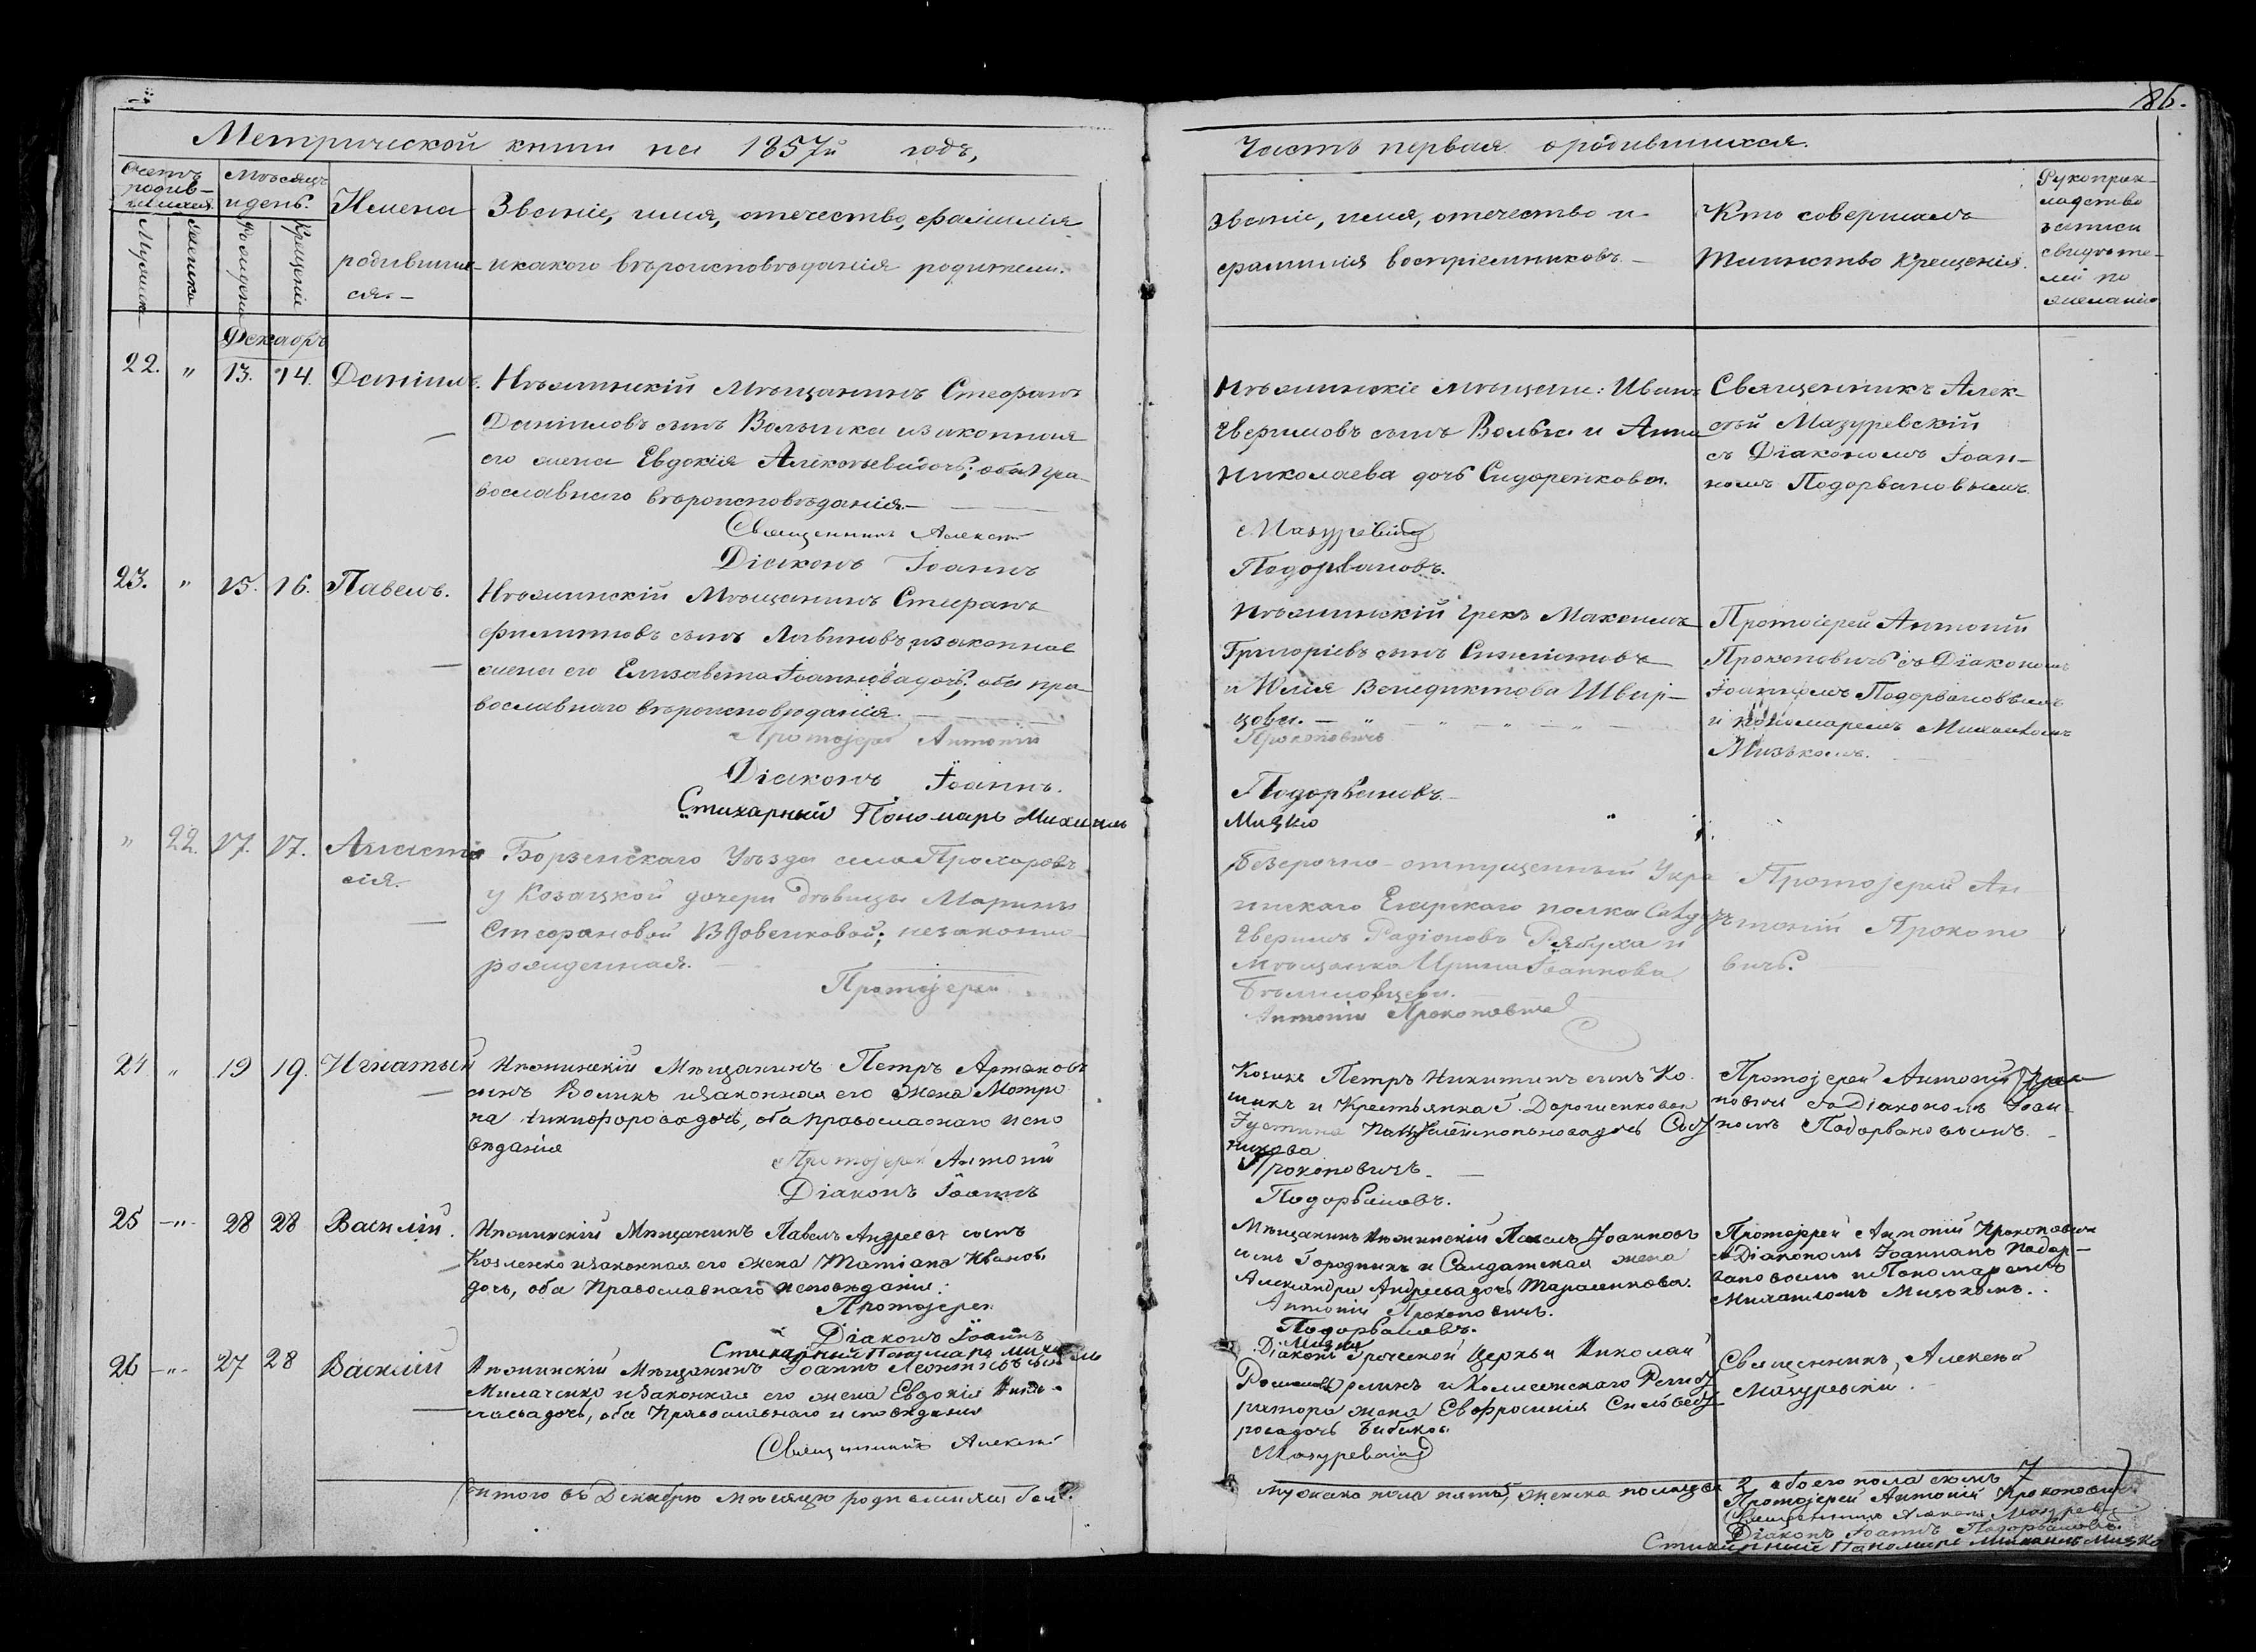 186.
Метрической книги на 1857й годъ,
Часть первая о родившихся.
Счетъ родив-шихся.
Мужеска
Женска
Мѣсяцъ и день.
Рожденія
Крещенія
Имена
родивших-
ся. –
Званіе, имя, отечество, фамилія
и какого вѣроисповѣданія родители.
Званіе, имя, отечество и
фамилія воспріемниковъ. –
Кто совершалъ
Таинство крещенія.
Рукоприк-
ладство
записи
свидѣте-
лей по
желанію
Декабрь
22. " 13. 14. Даніилъ.
Нѣжинскій Мѣщанинъ Стефанъ
Даніиловъ сынъ Волынка и законная
его жена Евдокія Алексѣева дочь; оба пра-
вославнаго вѣроисповѣданія. –
Священникъ Алексѣй
Діаконъ Іоаннъ
Нѣжинскіе мѣщане: Иванъ
сынъ и Анна
Николаева дочь Сидоренкова.
Мазуревскій
Подорвановъ.
Священникъ Алек-
сѣй Мазуревскій
съ Діакономъ Іоан-
номъ Подорвановымъ.
23. " 15. 16. Павелъ.
Нѣжинскій Мѣщанинъ Стефанъ
Филипповъ сынъ и законная
жена его Елизавета Іоаннова дочь; оба пра-
вославнаго вѣроисповѣданія. –
Протоіерей Антоній
Діаконъ Іоаннъ.
Стихарный Пономарь Михаилъ
Нѣжинскій Грекъ Максимъ
Григоріевъ сынъ
и Юлія Венедиктова Швар-
цова. –
Прокоповичъ
Подорвановъ
Мизко
Протоіерей Антоній
Прокоповичъ съ Діакономъ
Іоанномъ Подорвановымъ
и пономаремъ Михаиломъ
Мизькомъ.
" 22. 17. 17. Анаста-
сія.
Борзенскаго Уѣзда села Прохоровъ
у Козацкой дочери дѣвицы Марины
Стефановой Вдовенковой; незаконно-
рожденная. –
Протоіерей
Безсрочно-отпущенный Укра
инскаго Егерскаго полка
Радіоновъ Рябуха и
мѣщанка Ирина Іоаннова
Антоній Прокоповичъ
Протоіерей Ан
тоній Прокопо
вичъ.
24 " 19 19. Игнатый
Нѣжинскій Мѣщанинъ Петръ
сынъ Воликъ и законная его жена Мотро
на Никифорова дочь, оба православнаго испо
вѣданія
Протоіерей Антоній
Діаконъ Іоаннъ
Козакъ Петръ Никитинъ сынъ Ко
и Крестьянка Г. Дорошенковой
Устина дочь
Прокоповичъ. –
Подорвановъ.
Протоіерей Антоній Проко
повичъ со Діакономъ Іоан-
номъ Подорвановымъ. –
25 –"– 28 28 Василій.
Нѣжинскій Мѣщанинъ Павелъ Андреевъ сынъ
Козленко и законная его жена Татіана Иванова
дочь, оба Православнаго исповѣданія:
Протоіерей
Діаконъ Іоаннъ
Стихарный Пономарь Михаилъ
Мѣщанинъ Нѣжинскій Павелъ Іоанновъ
сынъ Городникъ и Салдатская жена
Александра Андреева дочь Тарасенкова.
Антоній Прокоповичъ.
Подорвановъ.
Мизко
Протоіерей Антоній Прокоповичъ
съ Діакономъ Іоанномъ Подор-
вановымъ и Пономаремъ
Михаиломъ Мизькомъ..
26 –"– 27 28 Василій
Нѣжинскій Мѣщанинъ Іоаннъ Леонтіевъ сынъ
Милаченко и законная его жена Евдокія
дочь, оба Православнаго исповѣданія
Священникъ Алексѣй
Діаконъ Греческой Церкви Николай
и Коллежскаго Регист
ратора жена Евфросинія
дочь Бибикова
Мазуревскій
Священникъ, Алексѣй
Мазуревскій.
Итого въ Декабрѣ мѣсяцѣ родившихся было
мужеска пола пять 5, женска пола два 2 обоего пола семь 7
Протоіерей Антоній Прокоповичъ
Священникъ Алексѣй Мазуревскій
Діаконъ Іоаннъ Подорвановъ.
Стихарный Пономарь Михаилъ Мизко